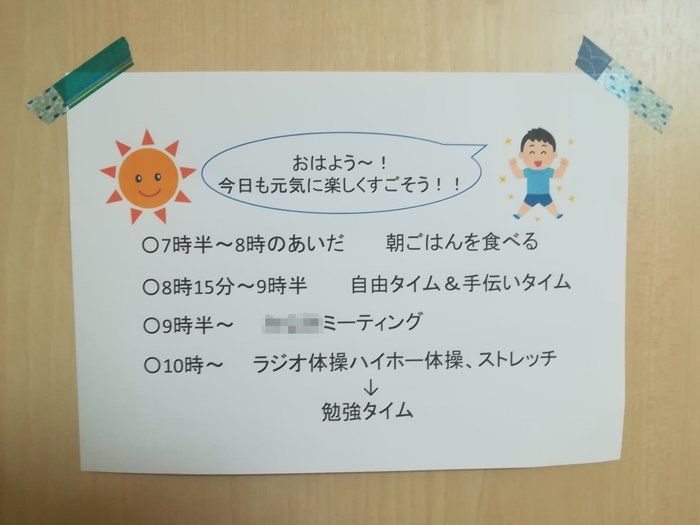 おはよう～！
今日も元気に楽しくすごそう！！
〇7時半～8時のあいだ　朝ごはんを食べる
〇8時15分～9時半　自由タイム＆手伝いタイム
〇9時半～　ミーティング
〇10時～　ラジオ体操ハイホー体操、ストレッチ
↓
勉強タイム